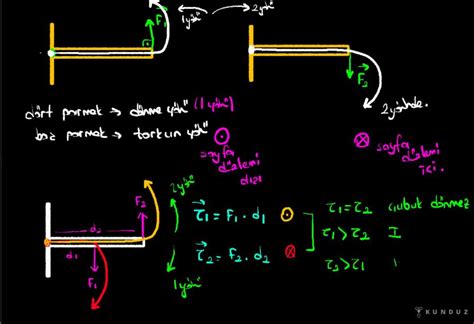 F₁
1 yönü
2 yönü
F₂
2 yönünde.
dört parmak → dönme yönü (1 yönü)
baş parmak → torkun yönü
sayfa düzlemi dışı
sayfa düzlemi içi.
2 yönü
F₂
d₂
d₁
F₁
1 yönü
τ₁ = F₁ . d₁
τ₂ = F₂ . d₂
τ₁ = τ₂ çubuk dönmez
τ₁ > τ₂ I
τ₂ > τ₁
KUNDUZ